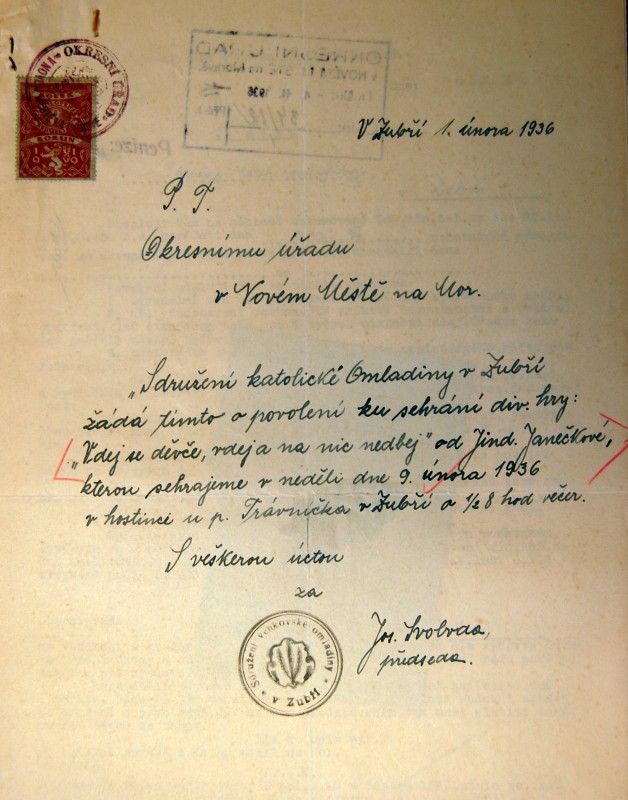 OKRESNÍ ÚŘAD
KOLEK
KORUN
OKRESNÍ ÚŘAD
v NOVÉM MĚSTĚ na Moravě
1936
Peníze:
V Zubří 1. února 1936
P. T.
Okresnímu úřadu
v Novém Městě na Mor.
„Sdružení katolické Omladiny v Zubří
žádá tímto o povolení ku sehrání div. hry:
„Vdej se děvče, vdej a na nic nedbej" od Jind. Janečkové,
kterou sehrajeme v neděli dne 9. února 1936
v hostinci u p. Trávníčka v Zubří o ½ 8 hod večer.
S veškerou úctou
za
Jos. Svoboda,
předseda.
Sdružení venkovské omladiny
v Zubří